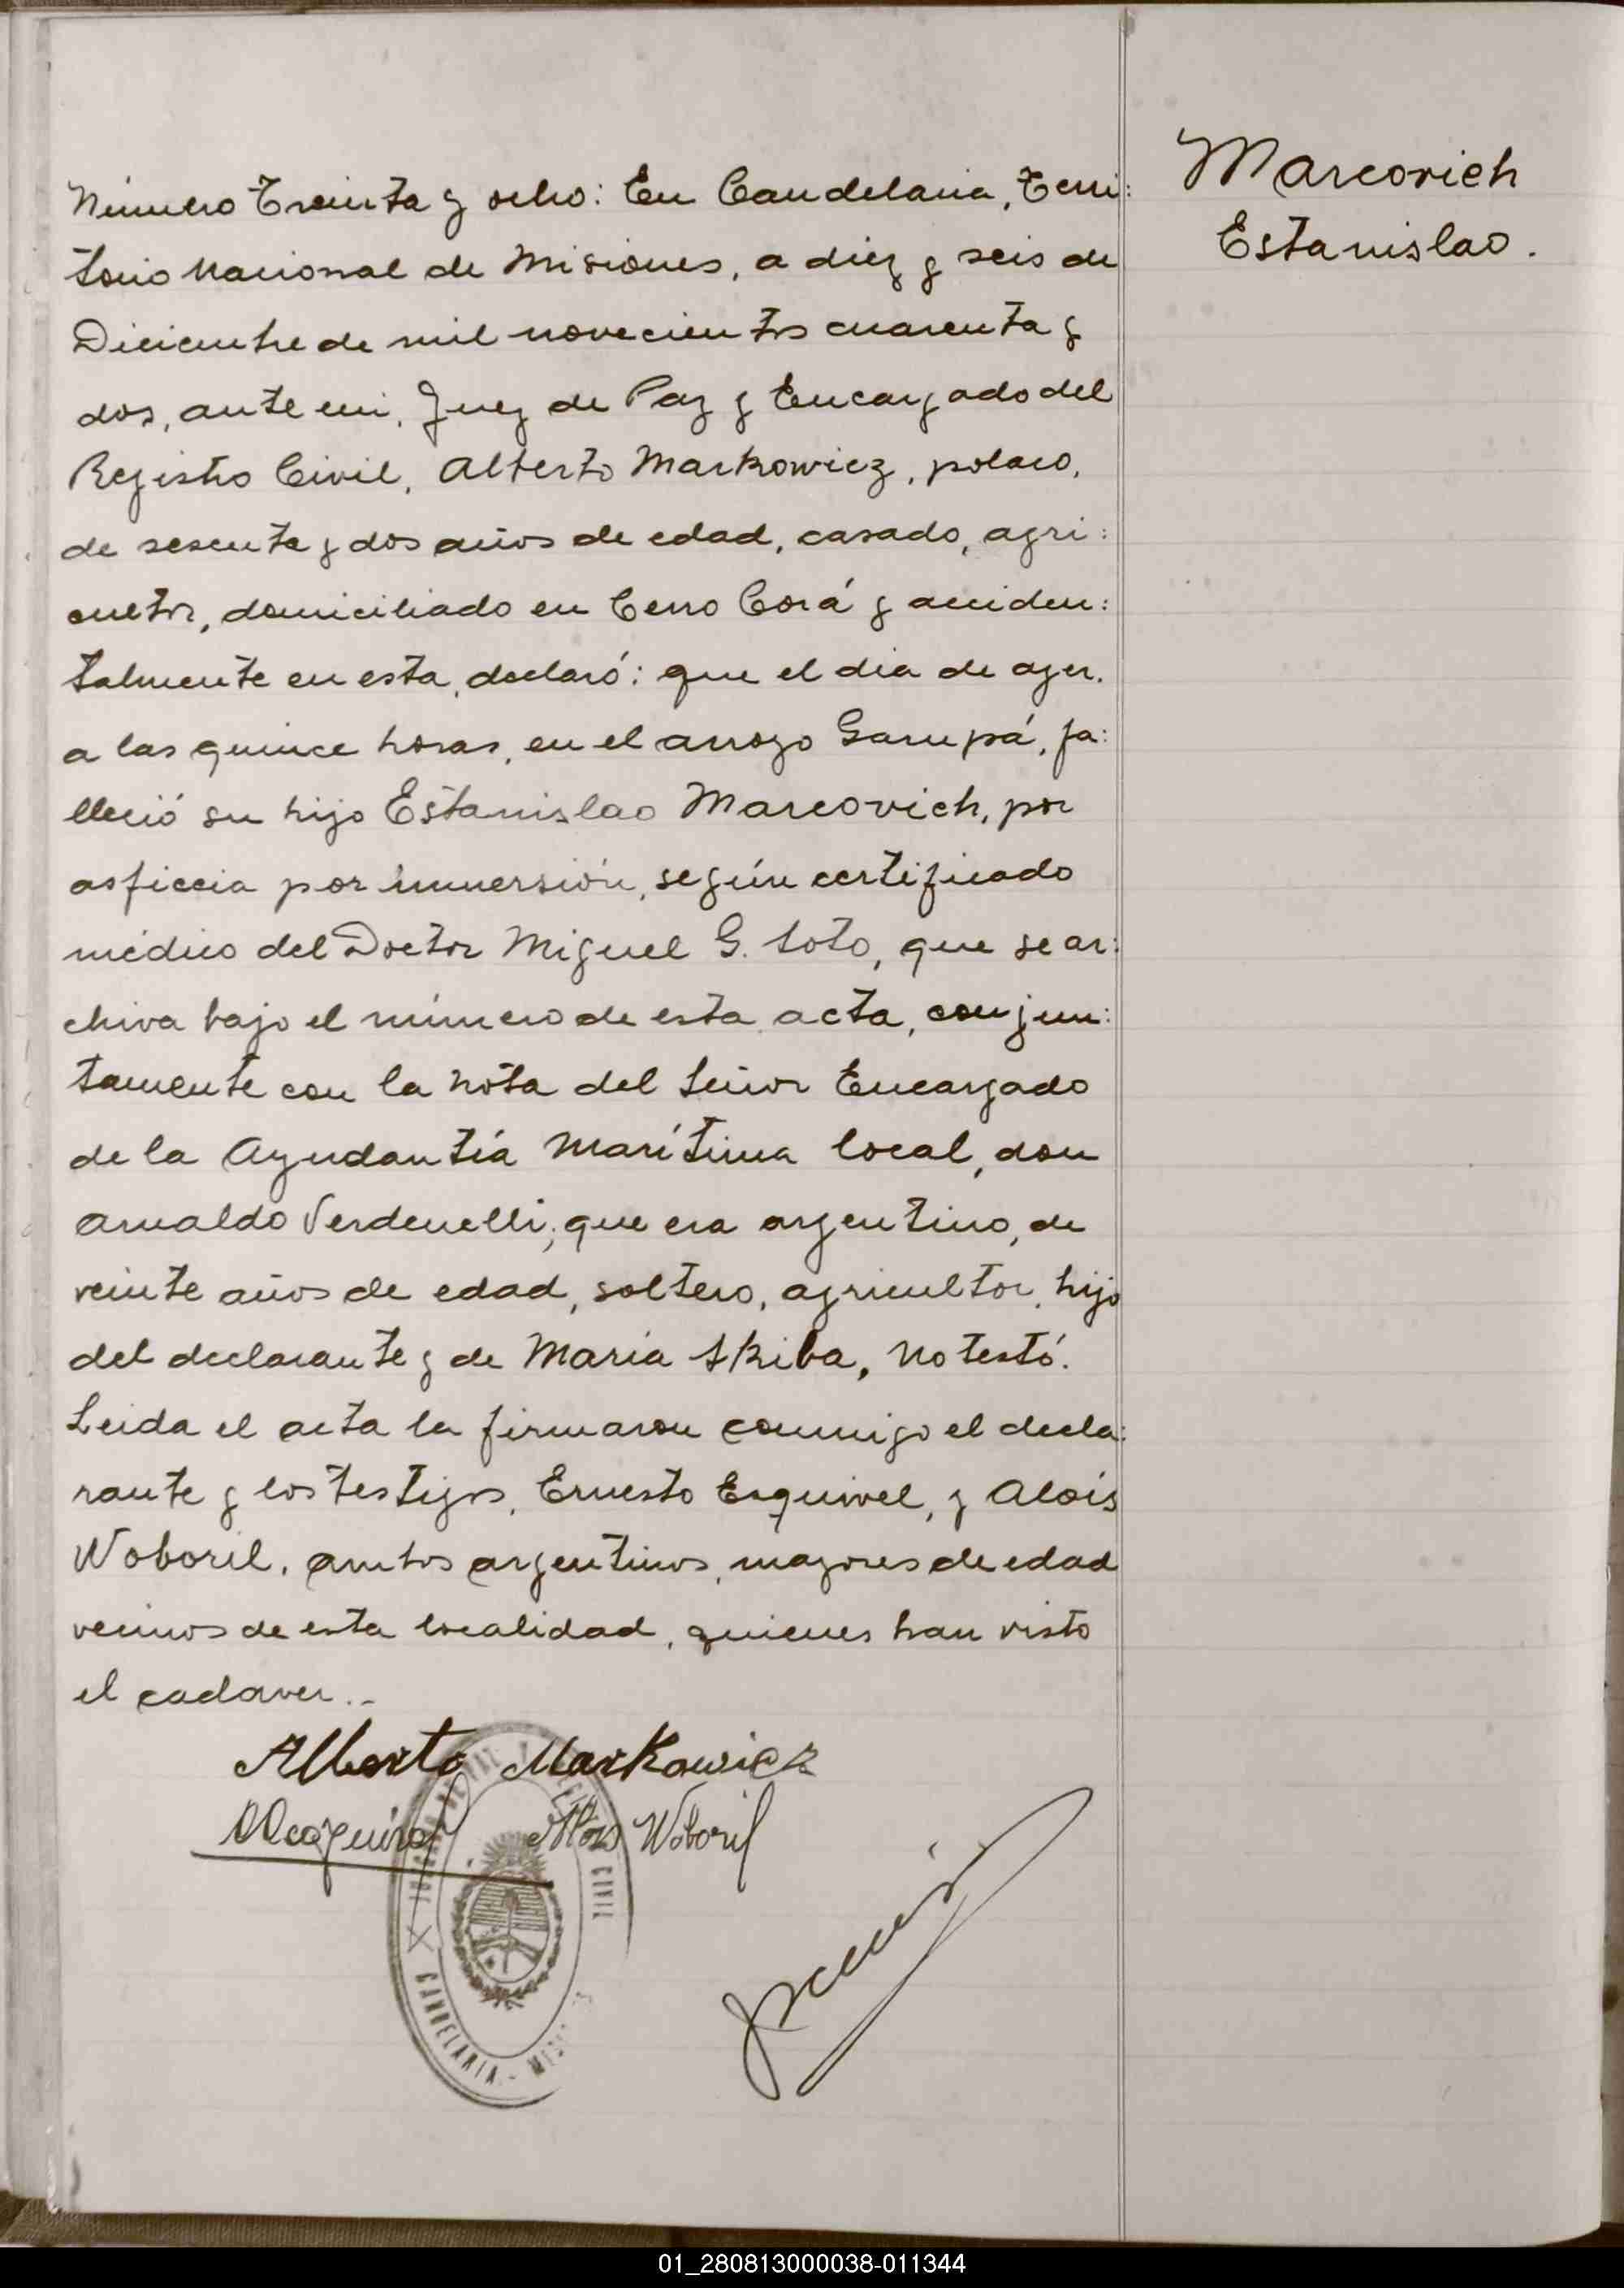 Número Treinta y ocho: En Candelaria, Terri:
torio Nacional de Misiones, a diez y seis de
Diciembre de mil novecientos cuarenta y
dos, ante mi, Juez de Paz y Encargado del
Registro Civil, Alberto Markowicz, polaco,
de sesenta y dos años de edad, casado, agri:
cultor, domiciliado en Cerro Corá y acciden:
talmente en esta, declaró: que el dia de ayer.
a las quince horas, en el arroyo Garupá, fa:
lleció su hijo Estanislao Marcovich, por
asficcia por inmersión, según certificado
médico del Doctor Miguel G. Soto, que se ar:
chiva bajo el número de esta acta, conjun:
tamente con la nota del Señor Encargado
de la Ayudantía Marítima local, don
Arnaldo Verdenelli; que era argentino, de
veinte años de edad, soltero, agricultor, hijo
del declarante y de María Skiba, No testó.
Leida el acta la firmaron conmigo el decla:
rante y los testigos, Ernesto Esquivel, y Alois
Woboril, ambos argentinos, mayores de edad
vecinos de esta localidad, quienes han visto
el cadaver..-
Alberto Markowicz
Alois Woboril
CIVIL
CANDELARIA
Marcovich
Estanislao.
01_280813000038-011344